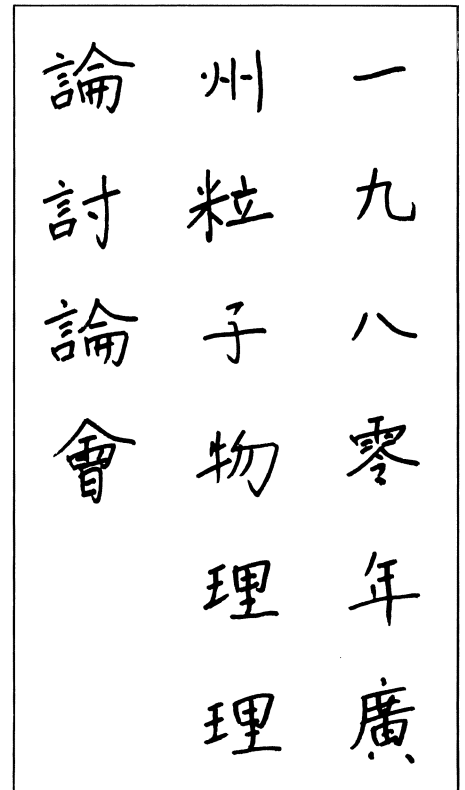 一九八零年廣
州粒子物理理
論討論會